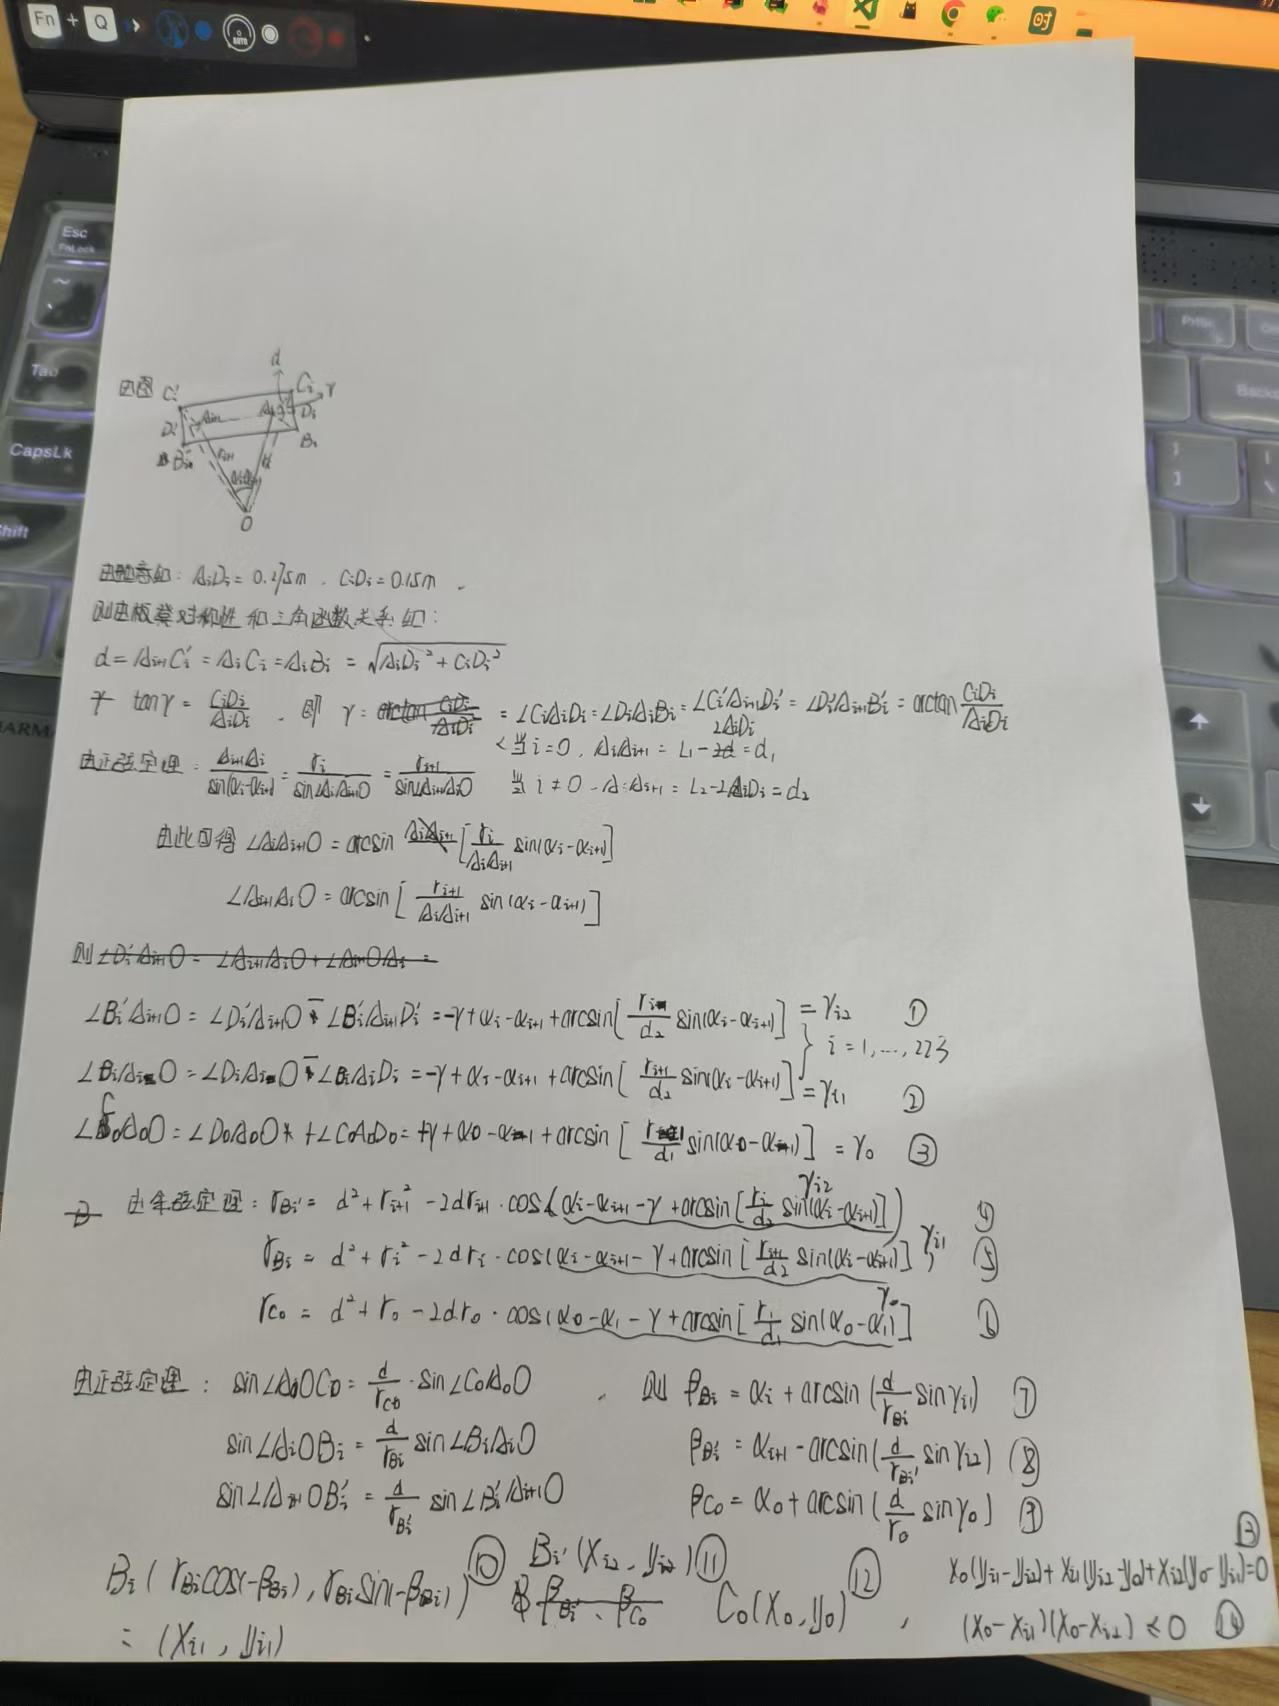 Fn + Q
时
Esc
FnLock
~
Tab
CapsLk
Shift
PrtSc
Backs
]
由图
d
C' Ci r
Ai+1 Ai Di
D' Bi
O
由题意知: AiDi = 0.275m . CiDi = 0.15m .
则由板凳对称性和三角函数关系知:
d = Ai+1Ci' = AiCi = AiBi = √(AiDi² + CiDi²)
tanγ = CiDi/AiDi . 即 γ = ∠CiAiDi = ∠DiAiBi = ∠Ci'Ai+1Di' = ∠Di'Ai+1Bi' = arctan CiDi/AiDi
2AiDi
当 i=0 , AiAi+1 = L1 - 2d = d1
由正弦定理: Ai+1Ai/sin(αi-αi+1) = ri/sin∠AiAi+1O = ri+1/sin∠Ai+1AiO 当 i≠0 . AiAi+1 = L2 - 2AiDi = d2
由此可得 ∠AiAi+1O = arcsin [ri/AiAi+1 sin(αi-αi+1)]
∠Ai+1AiO = arcsin [ri+1/AiAi+1 sin(αi-αi+1)]
则 ∠Di'Ai+1O = ∠Ai+1AiO + ∠Ai+1OAi =
∠Bi'Ai+1O = ∠Di'Ai+1O - ∠Bi'Ai+1Di' = -γ+αi-αi+1+arcsin[ri/d2 sin(αi-αi+1)] = γi2 ①
i = 1, ..., 223
∠BiAiO = ∠DiAiO - ∠BiAiDi = -γ+αi-αi+1+arcsin[ri+1/d2 sin(αi-αi+1)] = γi1 ②
∠C0A0O = ∠D0A0O + ∠C0A0D0 = +γ+α0-α1+arcsin[r1/d1 sin(α0-α1)] = γ0 ③
由余弦定理: rBi' = d²+ri+1²-2dri+1·cos(αi-αi+1-γ+arcsin[ri/d2 sin(αi-αi+1)]) γi2 ④
rBi = d²+ri²-2dri·cos(αi-αi+1-γ+arcsin[ri+1/d2 sin(αi-αi+1)]) γi1 ⑤
rC0 = d²+r0-2dr0·cos(α0-α1-γ+arcsin[r1/d1 sin(α0-α1)] γ0 ⑥
由正弦定理: sin∠A0OC0 = d/rC0·sin∠C0A0O , 则 βBi = αi+arcsin(d/rBi sinγi1) ⑦
sin∠AiOBi = d/rBi sin∠BiAiO βBi' = αi+1-arcsin(d/rBi' sinγi2) ⑧
sin∠Ai+1OBi' = d/rBi' sin∠Bi'Ai+1O βC0 = α0+arcsin(d/r0 sinγ0) ⑨
Bi(rBicos(-βBi), rBisin(-βBi)) ⑩ Bi'(xi2, yi2) ⑪ βBi'、βC0 C0(x0, y0) ⑫ , x0(yi1-yi2)+xi1(yi2-y0)+xi2(y0-yi1)=0 ⑬
= (xi1, yi1) (x0-xi1)(x0-xi2)≤0 ⑭